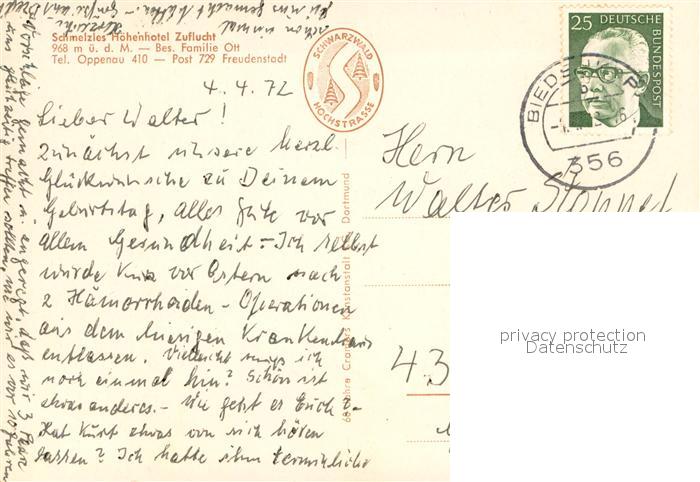 Schmelzles Höhenhotel Zuflucht
968 m ü. d. M. — Bes. Familie Ott
Tel. Oppenau 410 — Post 729 Freudenstadt
SCHWARZWALD
HOCHSTRASSE
25 DEUTSCHE
BUNDESPOST
BIEDENKOPF
356
4.4.72
Lieber Walter!
Zunächst unsere herzl.
Glückwünsche zu Deinem
Geburtstag, alles Gute vor
allem Gesundheit. – Ich selbst
wurde kurz vor Ostern nach
2 Hämorrhoiden-Operationen
aus dem hiesigen Krankenhaus
entlassen. Vielleicht muss ich
noch einmal hin? Schön ist
etwas anderes. – Wie geht es Euch?
Hat Kurt etwas von sich hören
lassen? Ich hatte ihm terminliche
Vorschläge gemacht u. angeregt, daß wir 3 Paar
uns gleichzeitig treffen sollten, wie wir es vor 10 Jahren
schon einmal
Herrn
Walter
43
Cramers Kunstanstalt Dortmund
privacy protection
Datenschutz